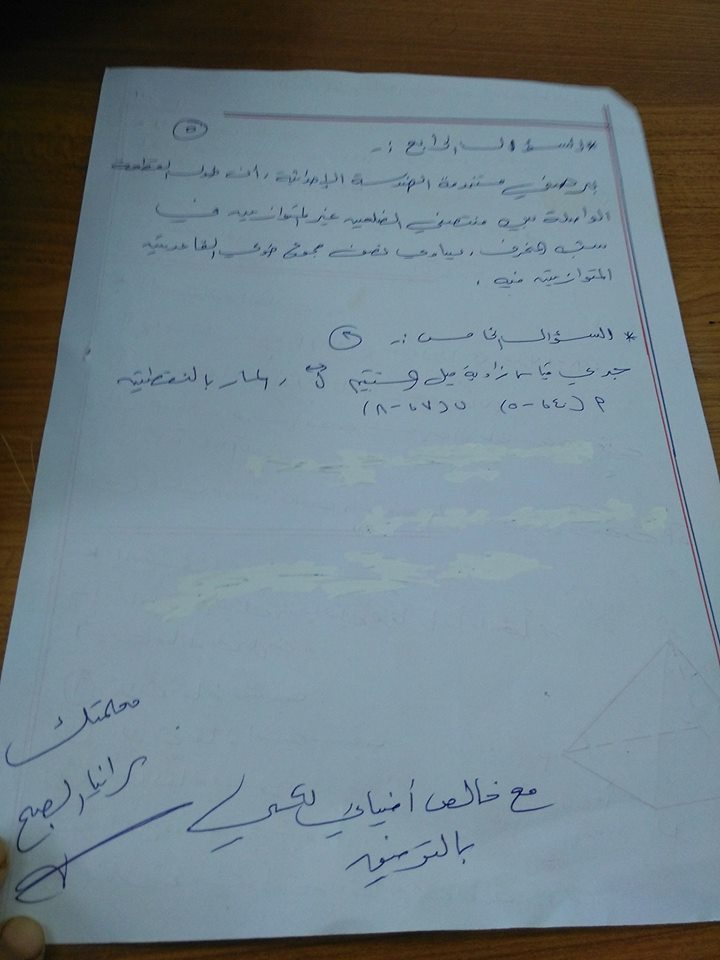 * السؤال الرابع :-
٥
برهني مستخدمة الهندسة الإحداثية ، أن طول القطعة
الواصلة بين منتصفي الضلعين غير المتوازيين في
شبه المنحرف ، يساوي نصف مجموع طولي القاعدتين
المتوازيتين فيه .
* السؤال الخامس :-
جدي قياس زاوية ميل المستقيم ل ، المار بالنقطتين
م (٤، -٥) ن (٧، -٨)
معلمتك
رانيا الصبح
مع خالص أمنياتي لكن
بالتوفيق